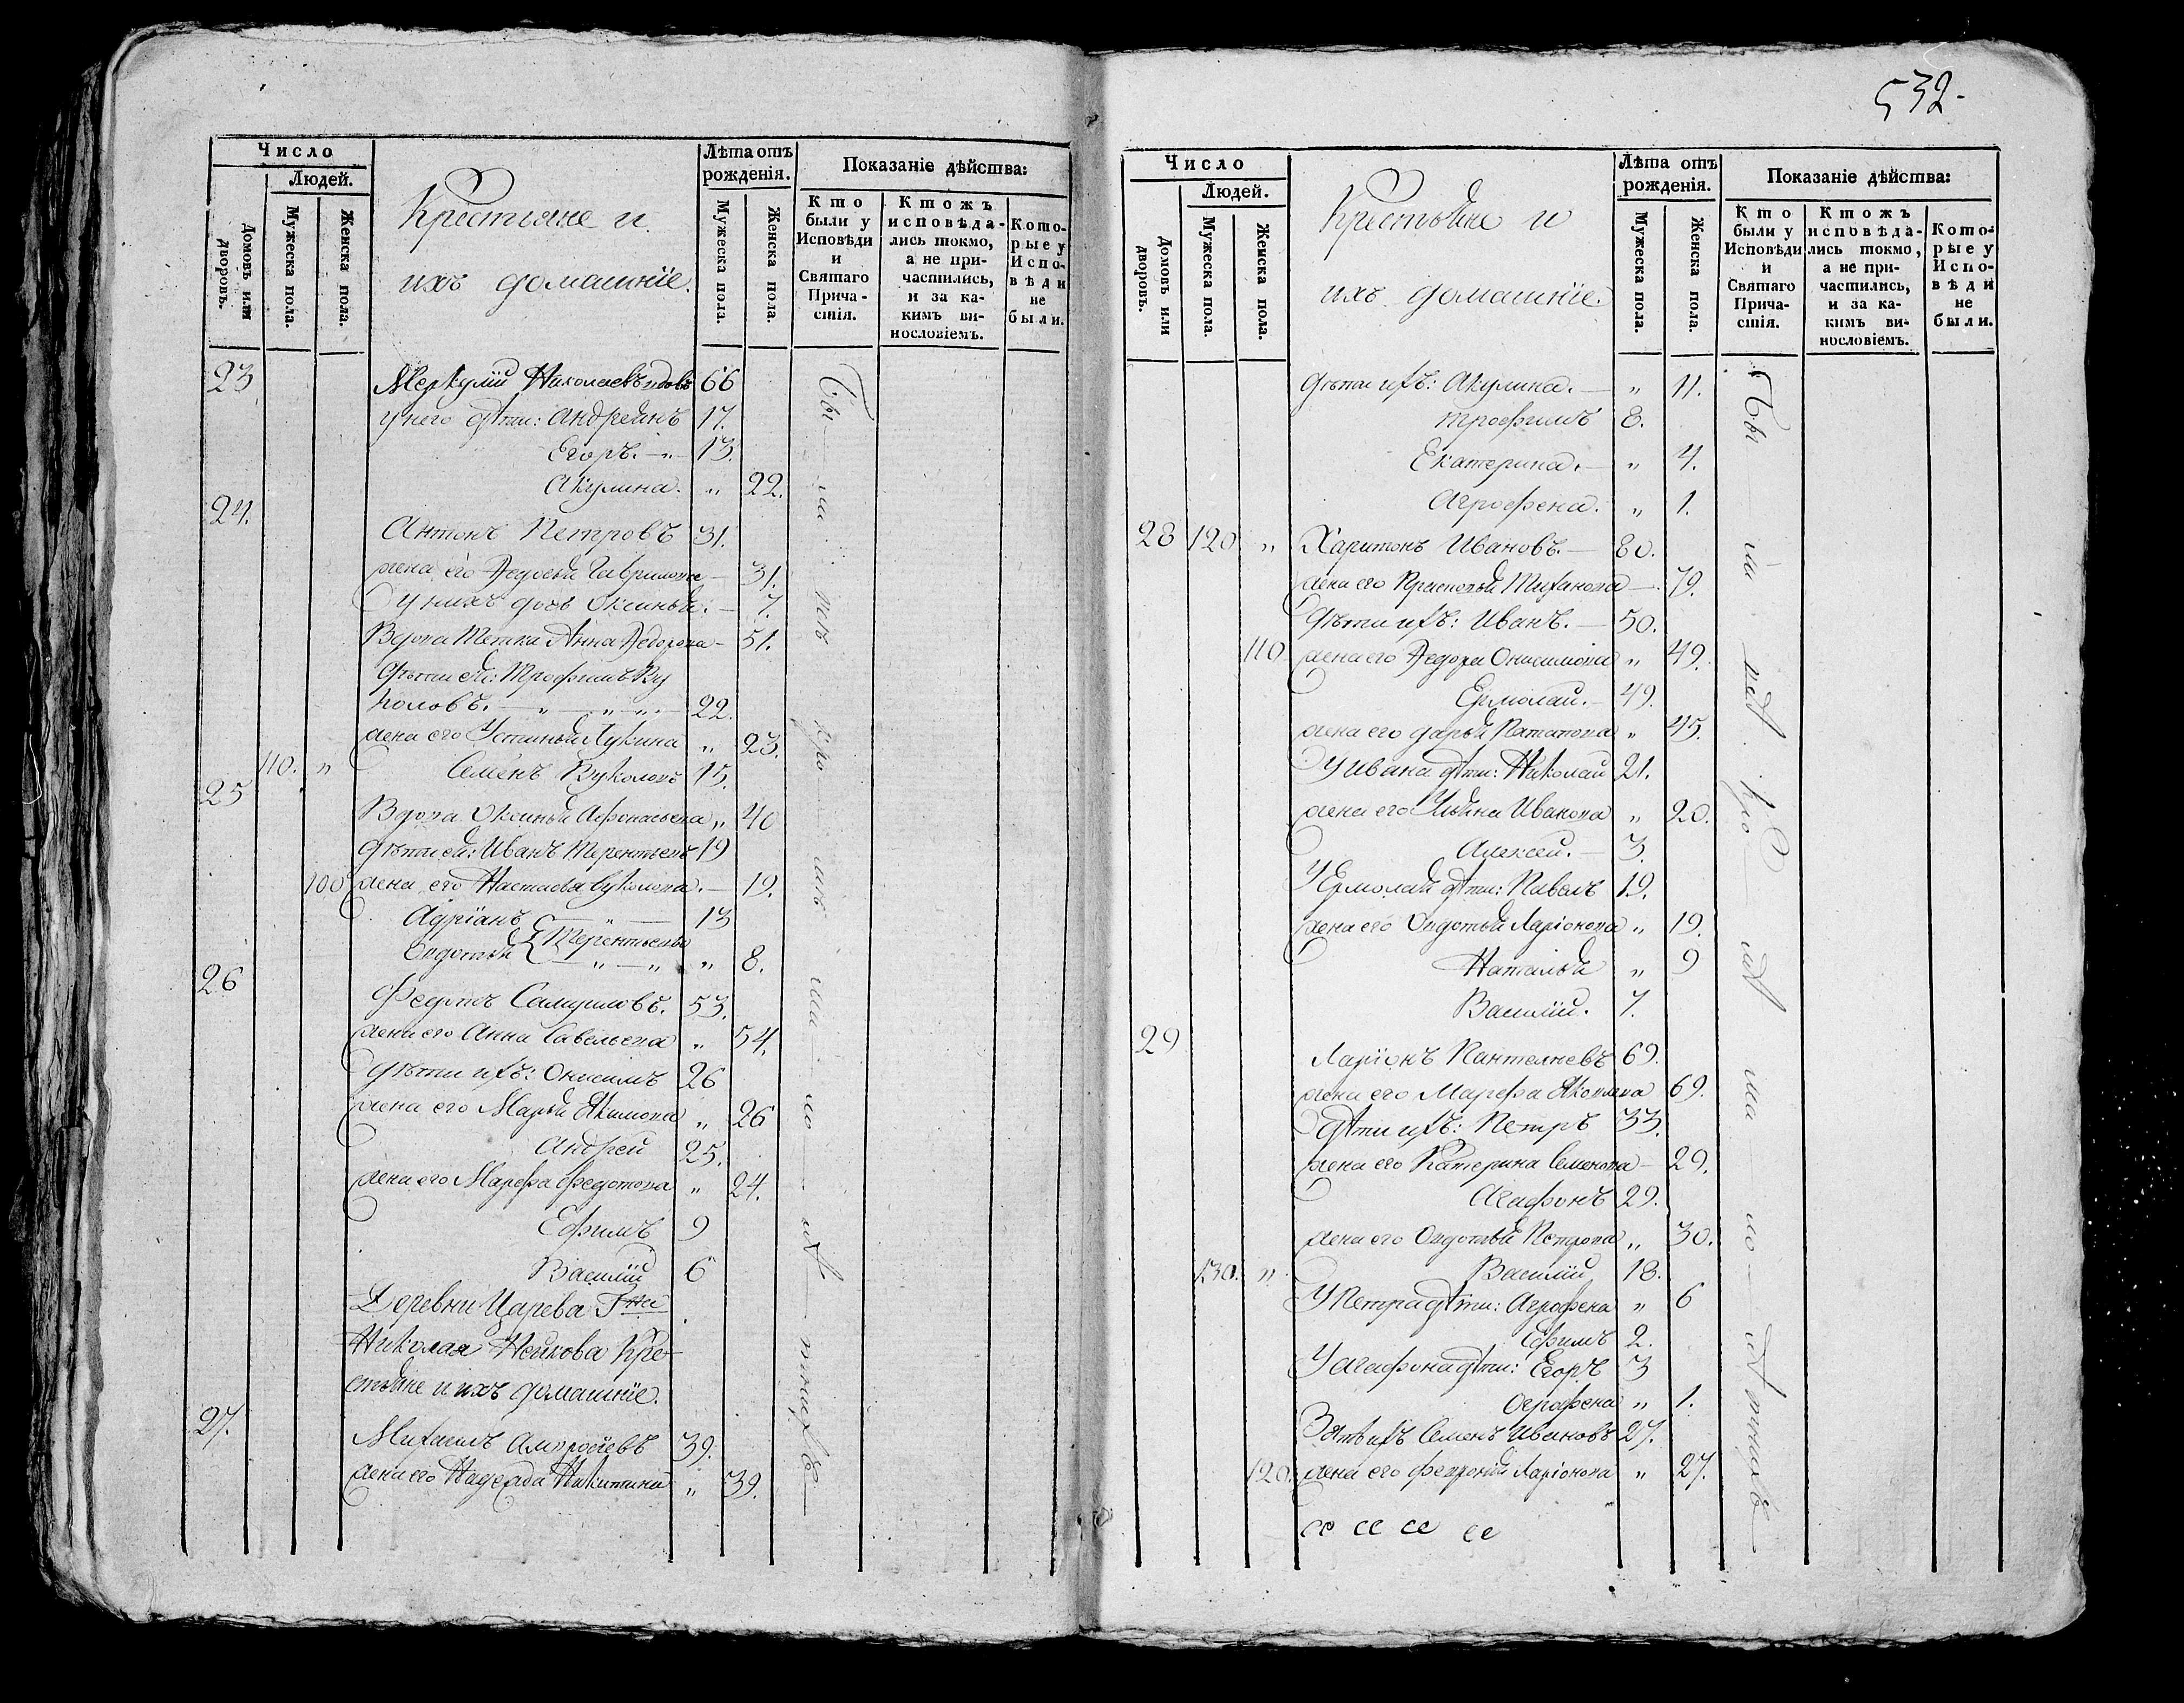 532-
Число
Людей.
Домовъ или дворовъ.
Мужеска пола.
Женска пола.
Крестьяне и
ихъ домашніе.
Лѣта отъ рожденія.
Мужеска пола.
Женска пола.
Показаніе дѣйства:
Кто были у Исповѣди и Святаго Причастія.
Ктожъ исповѣдались токмо, а не причастились, и за какимъ винословіемъ.
Которые у Исповѣди не были.
23 Меркулій Николаевъ вдовъ 66
у него дѣти: Андреянъ 17.
Егоръ. „ 13.
Акулина. „ 22.
24. Антонъ Петровъ 31.
жена его Ѳедосья Гаврилова 31.
у нихъ дочь Оксинья. 7.
Вдова тетка Анна Ѳедорова 51.
дѣти ей: Трофимъ Ву
коловъ. „ „ „ 22.
жена его Устинья Лукина „ 23.
110. „ Семенъ Вуколовъ 15.
25 Вдова Оксинья Афонасьева „ 40
дѣти ей: Иванъ Терентьевъ 19
100 жена его Настасья Вуколова. 19.
Адріанъ „ 13
Терентьевы
Овдотья „ „ „ 8.
26 Федотъ Самуиловъ. 53.
жена его Анна Савельева „ 54.
дѣти ихъ: Онисимъ 26
жена его Марья Якимова „ 26
Андрей 25.
жена его Марефа Федотова „ 24.
Ефимъ 9
Василій 6
Деревни Царева Гна
Николая Крестьяне и ихъ домашніе.
27. Михаилъ Амвросіевъ 39.
жена его Надежда Никитина „ 39.
Бы ли ис по вѣ
Число
Людей.
Домовъ или дворовъ.
Мужеска пола.
Женска пола.
Крестьяне и
ихъ домашніе.
Лѣта отъ рожденія.
Мужеска пола.
Женска пола.
Показаніе дѣйства:
Кто были у Исповѣди и Святаго Причастія.
Ктожъ исповѣдались токмо, а не причастились, и за какимъ винословіемъ.
Которые у Исповѣди не были.
дѣти ихъ: Акулина. „ 11.
Трофимъ 8.
Екатерина. „ 4.
Агрофена. „ 1.
28 120 „ Харитонъ Ивановъ. 80.
жена его Прасковья Тиханова 79.
дѣти ихъ: Иванъ. 50.
110 жена его Ѳедора Онисимова „ 49.
Ермолай. 49.
жена его Дарья Потапова „ 45.
У Ивана дѣти: Николай 21.
жена его Ульяна Иванова „ 20.
Алексей. 3.
У Ермолая дѣти: Павелъ 19.
жена его Овдотья Ларіонова „ 19.
Наталья „ 9
Василій. 7.
29 Ларіонъ Пантелеевъ 69.
жена его Марефа Яковлева 69.
дѣти ихъ: Петръ 33.
жена его Катерина Семенова 29.
Агафонъ 29.
жена его Овдотья Петрова „ 30.
130. „ Василій 18.
У Петра дѣти: Агрофена „ 6
Ефимъ 2.
У Агафона дѣти: Егоръ 3
Огрофена „ 1.
Зять ихъ Семенъ Ивановъ 27.
120. жена его Феврония Ларіонова „ 27.